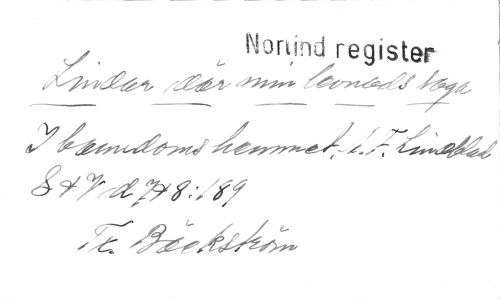 Norlind register
Lindar där min levnads väga
I barndomshemmet, J. F. Lindblad
S H V d 7 H 8: 189
Tr. Bäckström